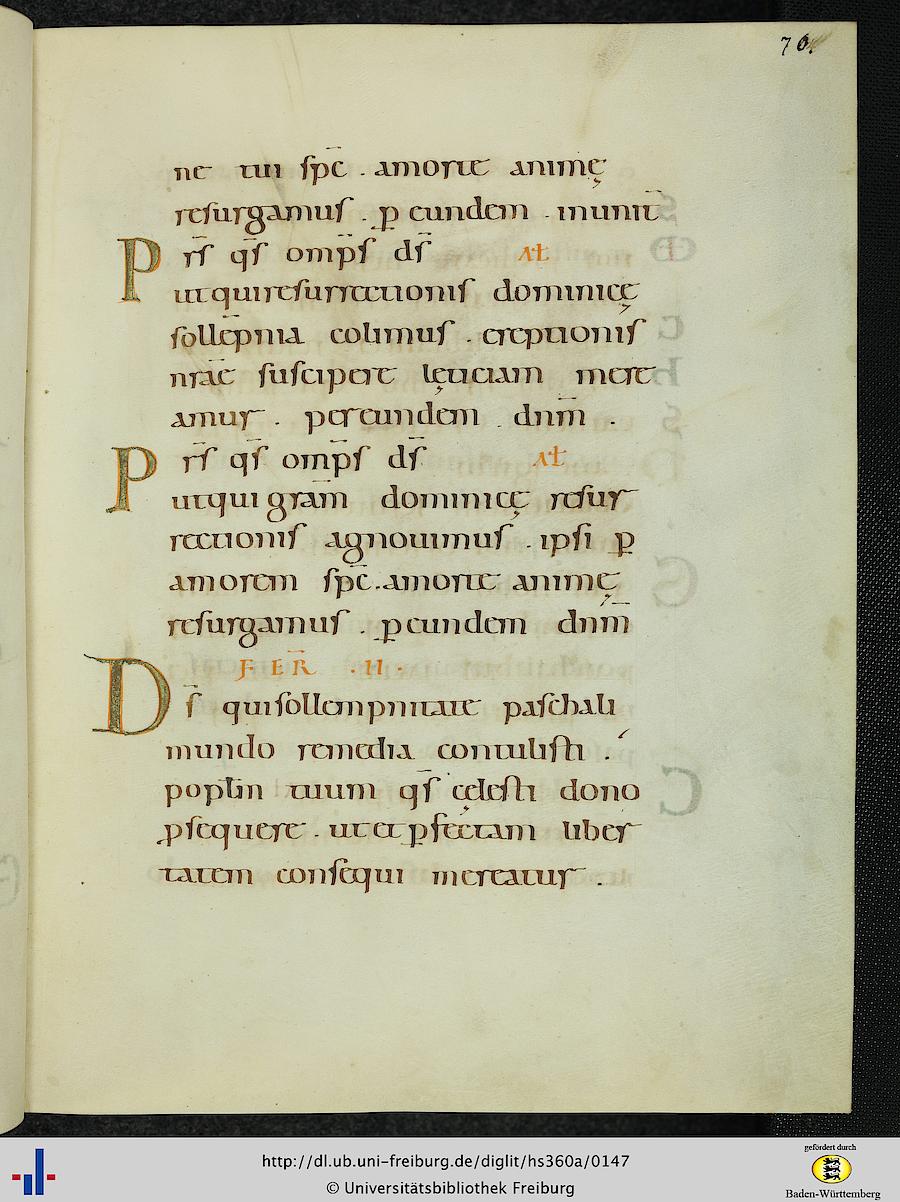 70.
ne tui sp̄c . amorte animę
resurgamus . ꝑ eundem . inunit̄
Pr̄s q̄s omp̄s d̄s at
utquiresurrectionis dominicę
sollēpnia colimus . ereptionis
nrāe suscipere lęticiam mere
amur . pereundem . dnm̄ .
Pr̄s q̄s omp̄s d̄s at
utqui grām dominicę resur
rectionis agnouimus . ipsi ꝑ
amorem sp̄c . amorte animę
resurgamus . ꝑeundem dnm̄
FER̄ . II .
Ds̄ quisollempnitate paschali
mundo remedia contulisti .
popl̄m tuum q̄s cęlesti dono
ꝓsequere . utet ꝑfectam liber
tatem consequi mereatur .
http://dl.ub.uni-freiburg.de/diglit/hs360a/0147
© Universitätsbibliothek Freiburg
gefördert durch
Baden-Württemberg